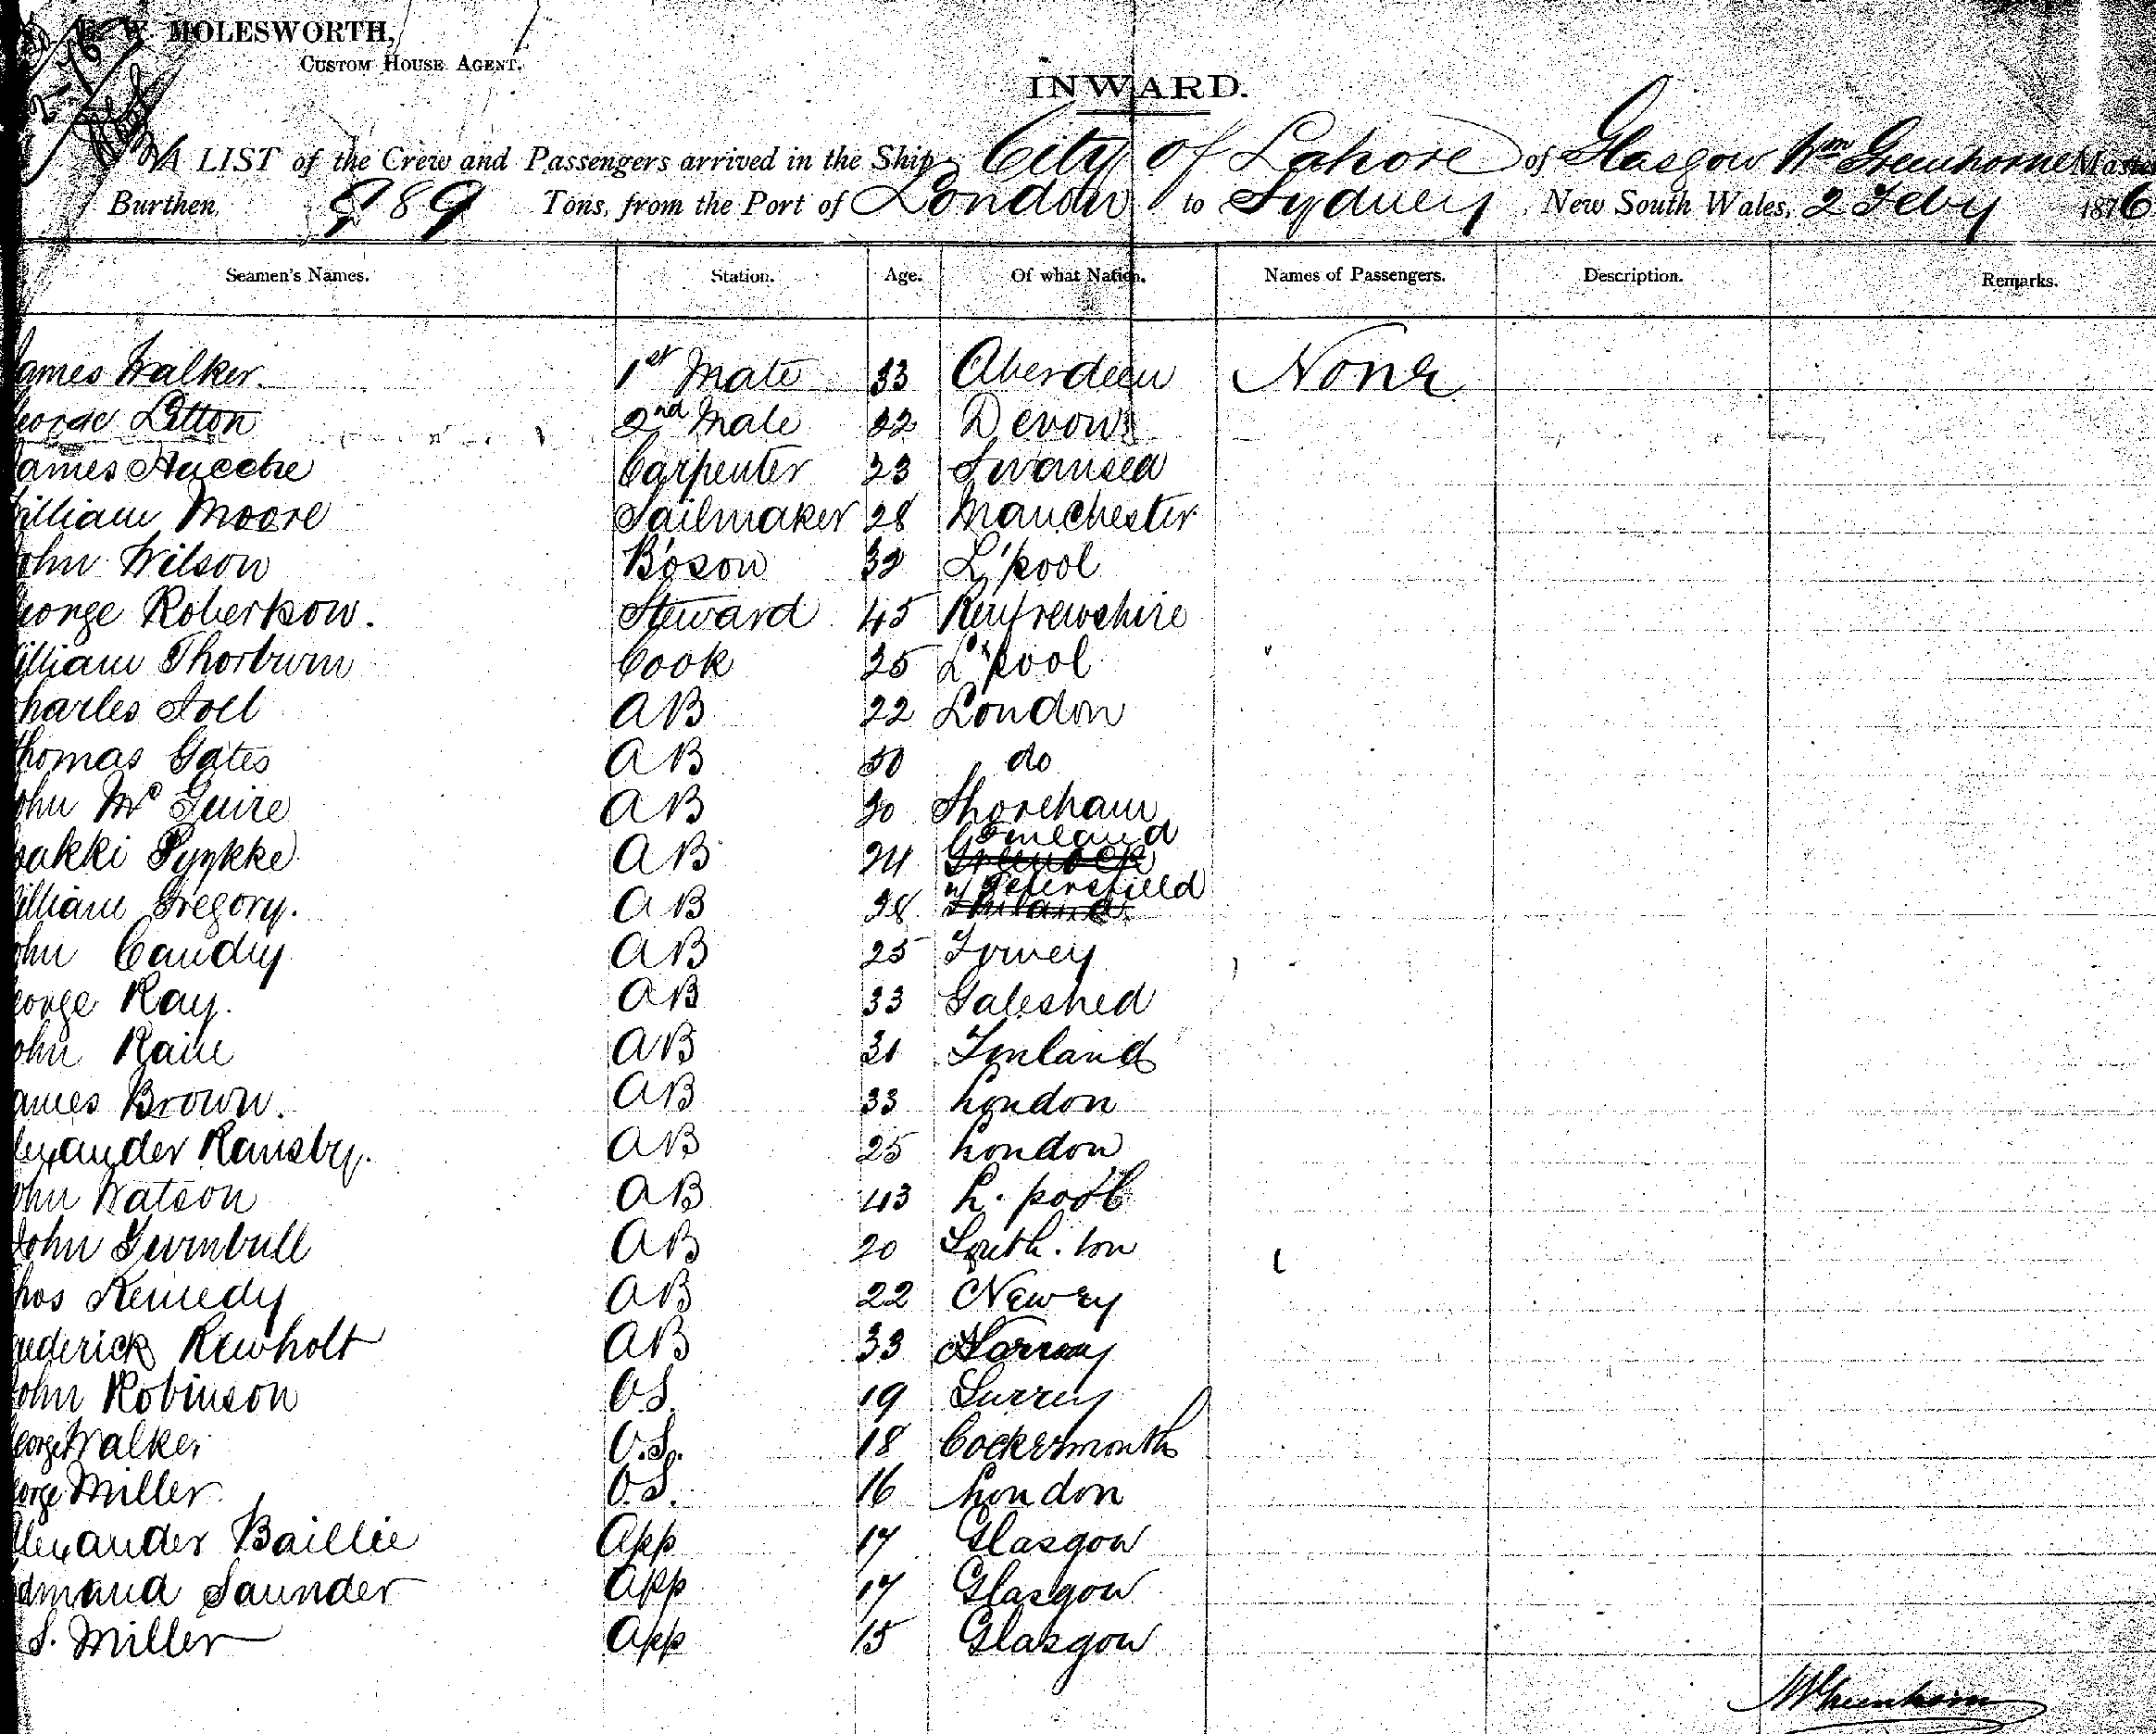 W. MOLESWORTH,
CUSTOM HOUSE AGENT.
INWARD.
A LIST of the Crew and Passengers arrived in the Ship City of Lahore of Glasgow Wm Greenhorne Master
Burthen 989 Tons, from the Port of London to Sydney, New South Wales, 2 Feby 1876
Seamen's Names. Station. Age. Of what Nation. Names of Passengers. Description. Remarks.
ames Walker. 1st Mate 33 Aberdeen None
eorge Litton 2nd Mate 22 Devon
ames Carpenter 23 Swansea
illiam Moore Sailmaker 28 Manchester
ohn Wilson Bo'son 32 L'pool
eorge Robertson. Steward 45 Renfrewshire
illiam Thorburn Cook 25 L'pool
harles AB 22 London
homas Gates AB 50 do
ohn Mc Guire AB 30 Shoreham
aakki Pyykke AB 24 Finland Greenock
illiam Gregory. AB 28 Petersfield Finland
ohn Caudy AB 25 Fowey
eorge Ray. AB 33 Gateshed
ohn Raiu AB 31 Finland
ames Brown. AB 33 London
lexander Ramsby. AB 25 London
ohn Watson AB 43 L. pool
John Turnbull AB 20 South. ton
hos Kennedy AB 22 Newry
rederick Rewholt AB 33 Norway
John Robinson O.S. 19 Surrey
eorge Walker O.S. 18 Cockermouth
orge Miller O.S. 16 London
lexander Baillie App 17 Glasgow
dmund Saunder App 17 Glasgow
S. Miller App 15 Glasgow
W Greenhorne